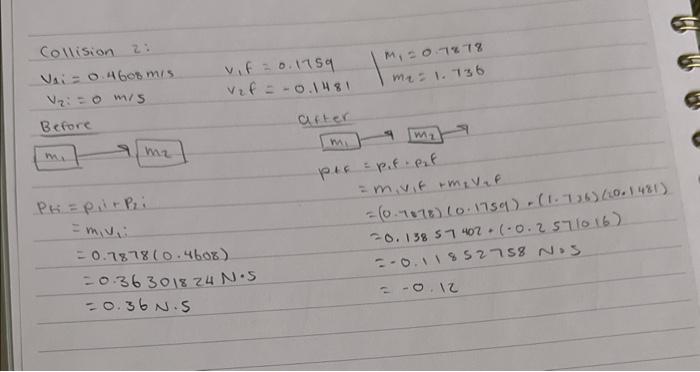 Collision 2:
V1i = 0.4608 m/s
V2i = 0 m/s
V1f = 0.1759
V2f = -0.1481
m1 = 0.7878
m2 = 1.736
Before
m1
m2
after
m1
m2
Pti = P1i + P2i
= m1v1i
= 0.7878(0.4608)
= 0.36301824 N·S
= 0.36 N·S
Ptf = P1f + P2f
= m1v1f + m2v2f
= (0.7878)(0.1759) + (1.736)(-0.1481)
= 0.13857402 + (-0.2571016)
= -0.11852758 N·S
= -0.12